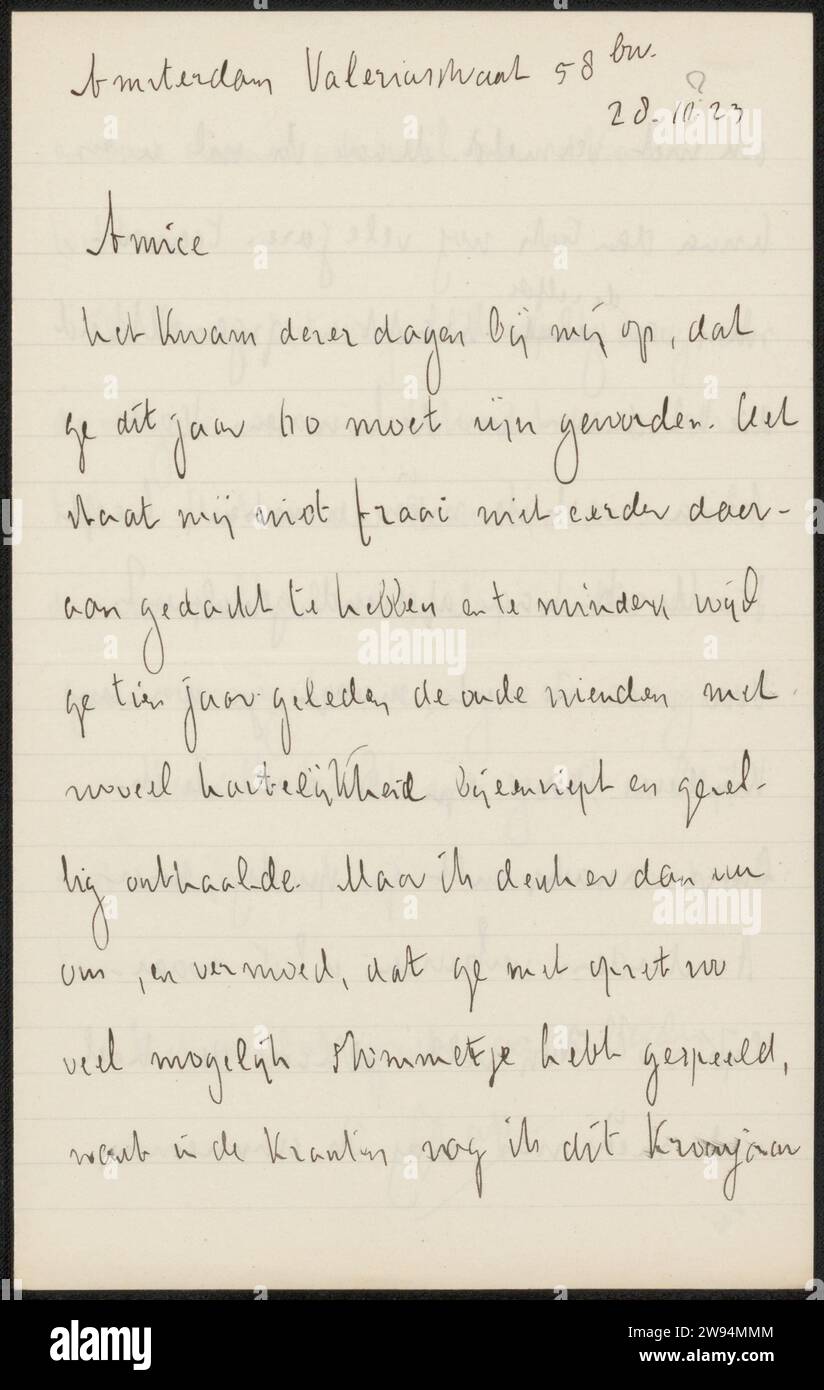 Amsterdam Valeriusstraat 58 bv.
28.10.23
Amice
het kwam dezer dagen bij mij op, dat
ge dit jaar 60 moet zijn geworden. Het
staat mij niet fraai niet eerder daar-
aan gedacht te hebben en te minder, wijl
ge tien jaar geleden de oude vrienden met
zooveel hartelijkheid bijeenriept en gezel-
lig onthaalde. Maar ik denk er dan nu
om, en vermoed, dat ge met opzet zoo
veel mogelijk stommetje hebt gespeeld,
want in de kranten zag ik dit kroonjaar
alamy
alamy
alamy
alamy
Image ID: 2W94MMM
www.alamy.com